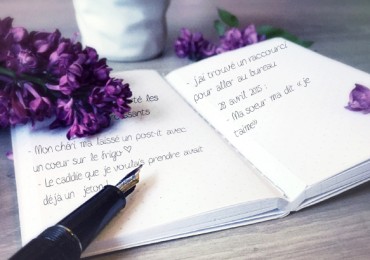 té les
sants
- Mon chéri m'a laissé un post-it avec
un coeur sur le frigo ♡
- Le caddie que je voulais prendre avait
déjà un jeton
- j'ai trouvé un raccourci
pour aller au bureau
28 avril 2015 :
- Ma soeur m'a dit « je
t'aime»